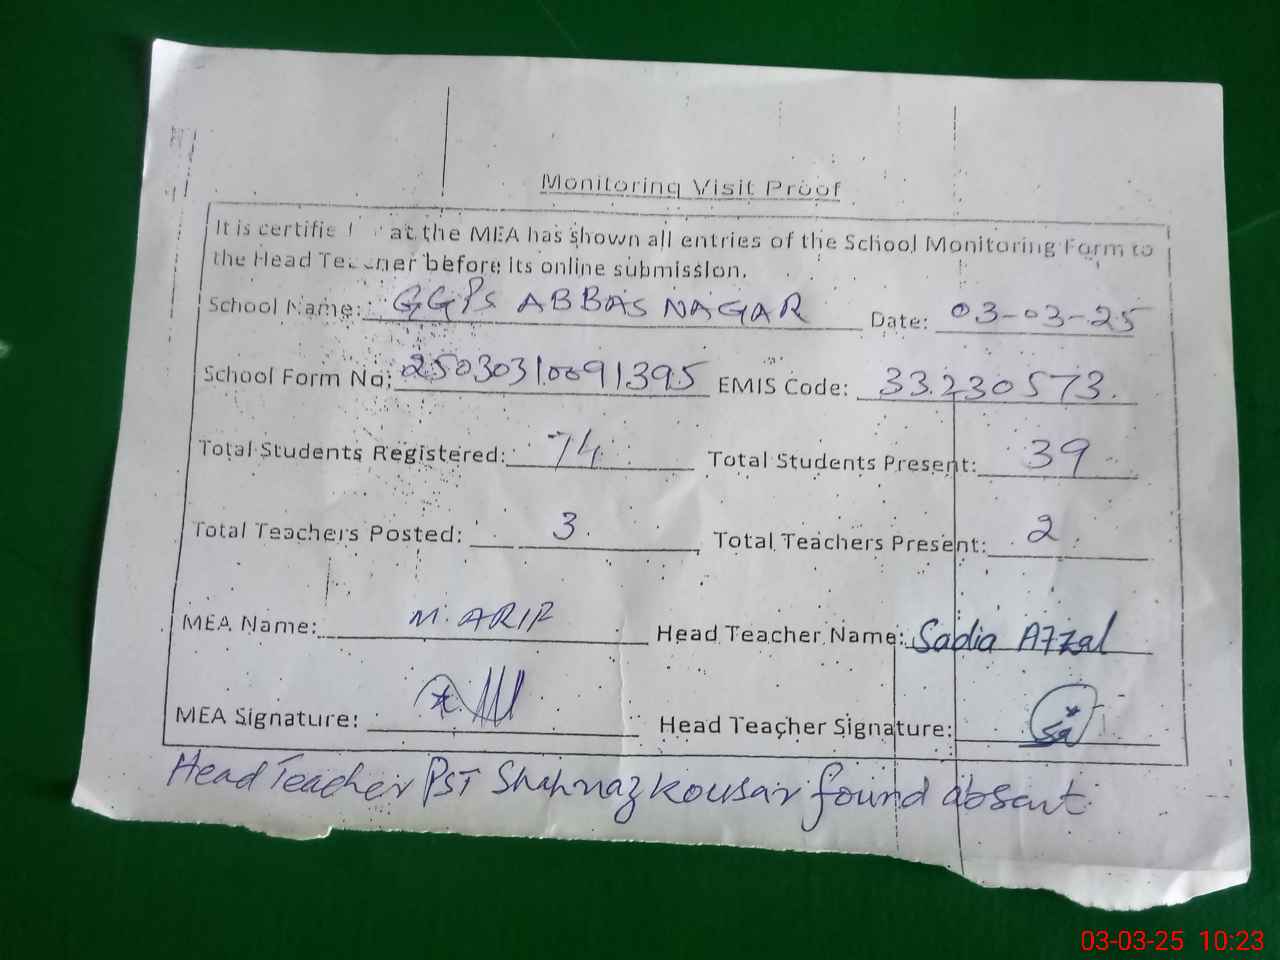 Monitoring Visit Proof
It is certifie at the MEA has shown all entries of the School Monitoring Form to
the Head Teacher before its online submission.
School Name: GGPS ABBAS NAGAR Date: 03-03-25
School Form No: 25030310091395 EMIS Code: 33230573
Total Students Registered: 74 Total Students Present: 39
Total Teachers Posted: 3 Total Teachers Present: 2
MEA Name: M. ARIF Head Teacher Name: Sadia Afzal
MEA Signature: Head Teacher Signature:
Head Teacher PST Shahnaz Kousar found absent
03-03-25 10:23